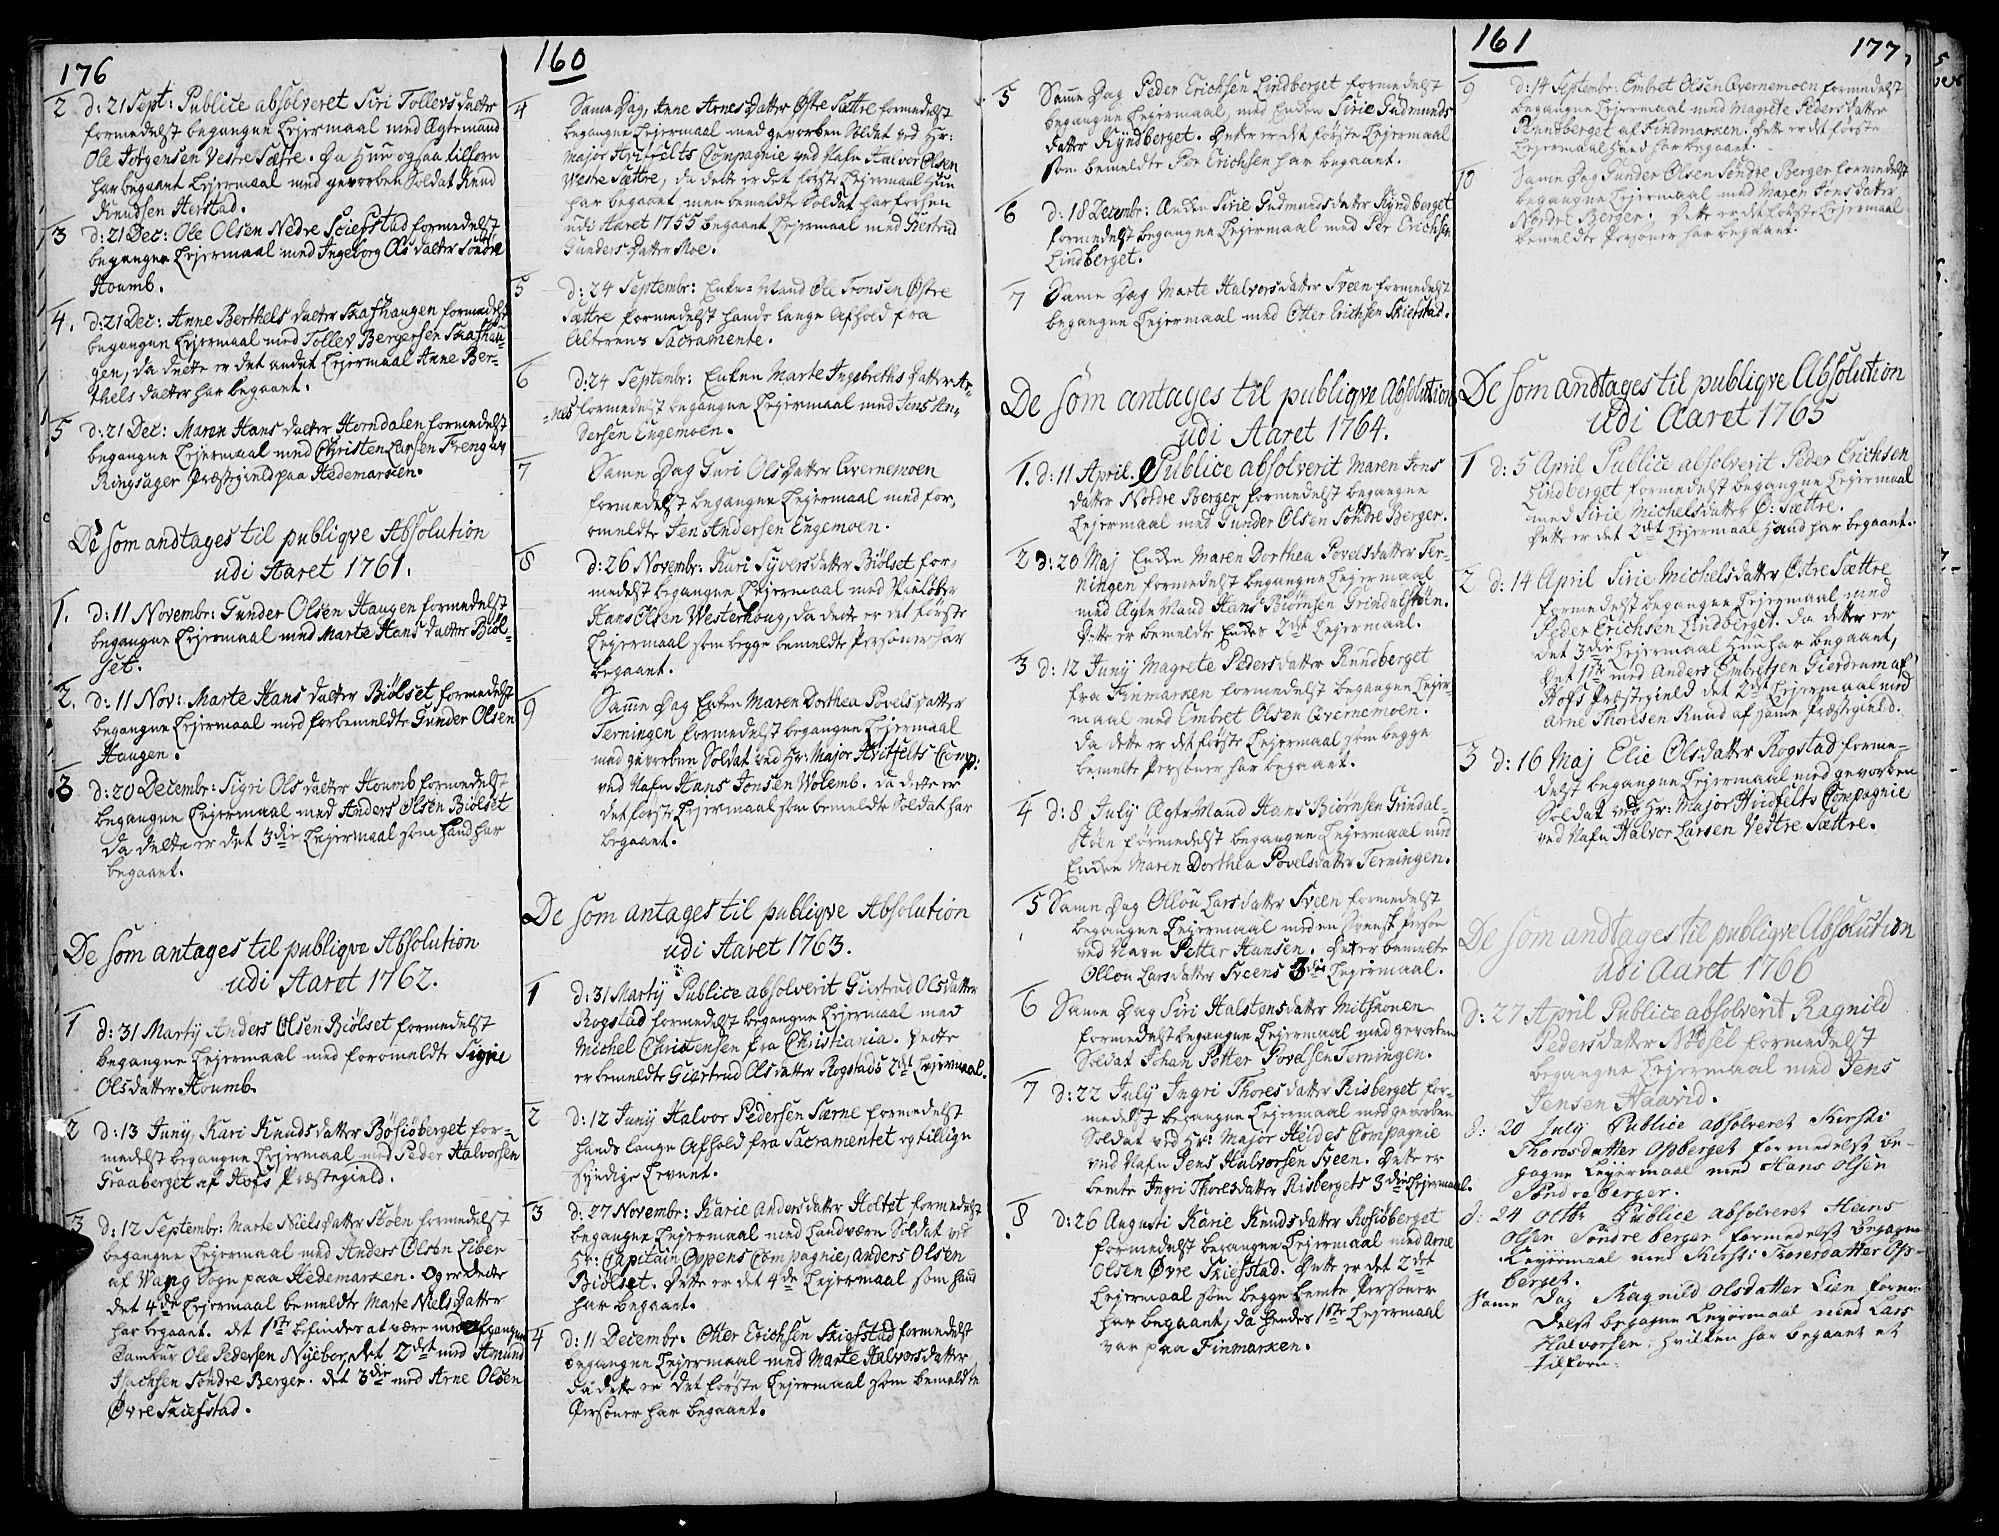 176
160
2 d: 21 Sept: Publice absolveret Siri Tollevsdatter
formedelst begangne Lejermaal med Ægtemand
Ole Jörgensen Vestre Sætre. Da Hun ogsaa tilforn
har begaaet Lejermaal med gevorben Soldat Knud
Knudsen Herstad.
3 d: 21 Dec: Ole Olsen Nedre Sciefstad formedelst
begangne Lejermaal med Ingeborg Olsdatter Söndre
Houmb.
4. d: 21 Dec: Anne Berthelsdatter Skafhaugen formedelst
begangen Lejermaal med Tollev Bergersen Skafhau-
gen, da dette er det andet Lejermaal Anne Ber-
thels datter har begaaet.
5 d: 21 Dec: Maren Hans datter Horndalen formedelst
begangne Lejermaal med Christen Larsen Freng av
Ringsager Præstegield paa Hedemarken.
De som andtages til publiqve Absolution
udi Aaret 1761.
1. d: 11 Novembr: Gunder Olsen Haugen formedelst
begangne Lejermaal med Marte Hans datter Biöl-
set.
2. d: 11 Nov: Marte Hans datter Biölset formedelst
begangne Lejermaal med forbemeldte Gunder Olsen
Haugen.
3 d: 20 Decembr: Sigri Ols datter Houmb formedelst
begangne Lejermaal med Anders Olsen Biölset
da dette er det 3die Lejermaal som hand har
begaaet.
De som antages til publiqve Absolution
udi Aaret 1762.
1 d: 31 Martij Anders Olsen Biölset formedelst
begangne Lejermaal med foromeldte Signe
Olsdatter Houmb.
2 d: 13 Junij, Kari Knudsdatter Bösiöberget for-
medelst begangne Lejermaal med Peder Halvorsen
Graaberget af Hofs Præstegield.
3 d: 12 Septembr: Marte Nielsdatter Stöen formedelst
begangne Lejermaal med Anders Olsen Liben
af Wang Sogn paa Hedemarken. Og er dette
det 4de Lejermaal bemeldte Marte Niels Datter
har begaaet. det 1ste befindes at være med afgangne
Tambur Ole Pedersen Nyebor, det 2det med Amund
Isachsen Söndre Berger. det 3die med Arne Olsen
Øvre Skiefstad.
4 Same Dag, Anne Arnesdatter Østre Sættre formedelst
begangne Lejermaal med gevorben Soldat ved Hr:
Major Hvitfelts Compagnie ved Nafn Halvor Olsen
Westre Sættre, da dette er det første Lejermaal Hun
har begaaet men bemeldte Soldat har forhen
udi Aaret 1755 begaaet Lejermaal med Giertrud
Gunders Datter Moe.
5 d: 24 Septembr: Enke-Mand Ole Tronsen Østre
Sættre formedelst hands lange Afhold fra
Alterens Sacramente.
6 d: 24 Septembr: Enken Marte Ingebreths Datter Ar-
-næs formedelst begangne Lejermaal med Jens An-
dersen Engemoen.
7 Same Dag Guri Olsdatter Qvernemoen
formedelst begangne Lejermaal med for,
omeldte Jen Andersen Engemoen.
8 d: 26 Novembr: Kari Syversdatter Biölset for-
medelst begangne Lejermaal med
Hans Olsen Westerhoug, da dette er det første
Lejermaal som begge bemeldte Personer har
begaaet.
9 Same Dag Enken Maren Dorthea Povels datter
Terningen formedelst begangne Lejermaal
med gevorben Soldat ved Hr: Major Hvitfelts Comp:
ved Nafn Hans Jonsen Wolemb. da dette er
det først Lejermaal som bemeldte Soldat har
begaaet.
De som antages til publiqve Absolution
udi Aaret 1763.
1 d: 31 Martij Publice absolverit Giertrud Olsdatter
Rogstad formedelst begangne Lejermaal med
Michel Christensen fra Christiania. Dette
er bemeldte Giertrud Olsdatter Rogstads 2det Lejermaal.
2 d: 12 Junij Halvor Pedersen Særne formedelst
hands lange Afhold fra Sacramentet og tillige
syndige Levnet.
3 d: 27 Novembr: Karie Andersdatter Holtet formedelst
begangne Lejermaal med Landværn Soldat ved
Hr: Capitain Oppens Compagnie, Anders Olsen
Biölset. Dette er det 4de Lejermaal som hand
har begaaet.
4 d: 11 Decembr. Otter Erichsen Skiefstad formedelst
begangne Lejermaal med Marte Halvorsdatter
da dette er det første Lejermaal som bemeldte
Personer har begaaet.
161
177
5 Same Dag Peder Erichsen Lindberget formedelst
begangne Lejermaal, med Enken Sirie Gudmunds
datter Kyndberget. Dette er det første Lejermaal
som bemeldte Per Erichsen har begaaet.
6 d: 18 Decembr: Enken Sirie Gudmundsdatter Kyndberget
formedelst begangne Lejermaal med Per Erichsen
Lindberget.
7 Same Dag Marte Halvorsdatter Sveen formedelst
begangne Lejermaal med Otter Erichsen Skiefstad.
De som antages til publiqve Absolution
udi Aaret 1764.
1. d: 11 April. Publice absolverit Maren Jons
datter Nordre Berger formedelst begangne
Lejermaal med Gunder Olsen Söndre Berger.
2 d: 20 Maj Enken Maren Dorthea Povelsdatter Ter-
ningen formedelst begangne Lejermaal
med Ægte Mand Hans Biörnsen Grindalstöen.
Dette er bemeldte Enkes 2det Lejermaal.
3 d: 12 Junij Magrete Pedersdatter Rundberget
fra Finmarken formedelst begangne Lejer-
maal med Embret Olsen Qvernemoen.
da dette er det første Lejermaal som begge
bemelte Personer har begaaet.
4 d: 8 July Ægte Mand Hans Biörnsen Grindal-
stöen formedelst begangne Lejermaal med
Enken Maren Dorthea Povelsdatter Terningen.
5 Same Dag Ollou Larsdatter Sveen formedelst
begangne Lejermaal med en Svensk Person
ved Navn Petter Hansen. Det er bemelte
Ollou Larsdatter Sveens 3die Lejermaal.
6 Same Dag Siri Halstensdatter Mitskonen
formedelst begangne Lejermaal med gevorben
Soldat Johan Petter Povelsen Terningen.
7 d: 22 July Ingri Thoresdatter Risberget for-
medelst begangne Lejermaal med gevorben
Soldat ved Hr: Major Heides Compagnie
ved Nafn Jens Halvorsen Sveen. Dette er
bemte Ingri Thoresdatter Risbergets 3die Lejermaal.
8 d: 26 Augusti Karie Knudsdatter Rosiöberget
formedelst begangne Lejermaal med Arne
Olsen Øvre Skiefstad. Dette er det 2det
Lejermaal som begge bemte Personer
har begaaet, da hendes 1ste Lejermaal
var paa Finmarken.
9 d: 14 Septembr: Embret Olsen Qvernemoen formedelst
begangne Lejermaal med Magrete Pedersdatter
Rundberget af Findmarken. Dette er det første
Lejermaal Hand har begaaet.
10 Same Dag Gunder Olsen Söndre Berger formedelst
begangne Lejermaal med Maren Jonsdatter
Nordre Berger. Dette er det første Lejermaal
bemeldte Personer har begaaet.
De som andtages til publiqve Absolution
udi Aaret 1765
1 d: 5 April Publice absolverit Peder Erichsen
Lindberget formedelst begangne Lejermaal
med Sirie Michelsdatter Ø: Sættre.
Dette er det 2det Lejermaal Hand har begaaet.
2 d: 14 April Sirie Michelsdatter Østre Sættre
formedelst begangne Lejermaal med
Peder Erichsen Lindberget. da dette er
det 3die Lejermaal Hun har begaaet,
Det 1ste med Anders Embretsen Gierdrum af
Hofs Præstegield det 2det Lejermaal med
Arne Thoresen Rund af same Præstegield.
3 d: 16 Maj Elie Olsdatter Rogstad forme-
delst begangne Lejermaal med gevorben
Soldat ved Hr: Major Hvidfelts Compagnie
ved Nafn Halvor Larsen Vestre Sættre.
De som andtages til publiqve Absolution
udi Aaret 1766
d: 27 April Publice absolverit Ragnild
Pedersdatter Nödsel formedelst
begangne Lejermaal med Jens
Jensen Haavid.
d: 20 July Publice absolveret Kirsti
Thoresdatter Opberget formedelst be-
gagne Lejermaal med Hans Olsen
Söndre berger.
d: 24 Octbr Publice absolveret Hans
Olsen Söndre berger formedelst begagne
Lejermaal med Kirsti Thoresdatter Op-
berget.
Same Dag Ragnild Olsdatter Lien forme-
delst begagne Lejermaal med Lars
Halvorsen, hvilken har begaaet et
tilforn.